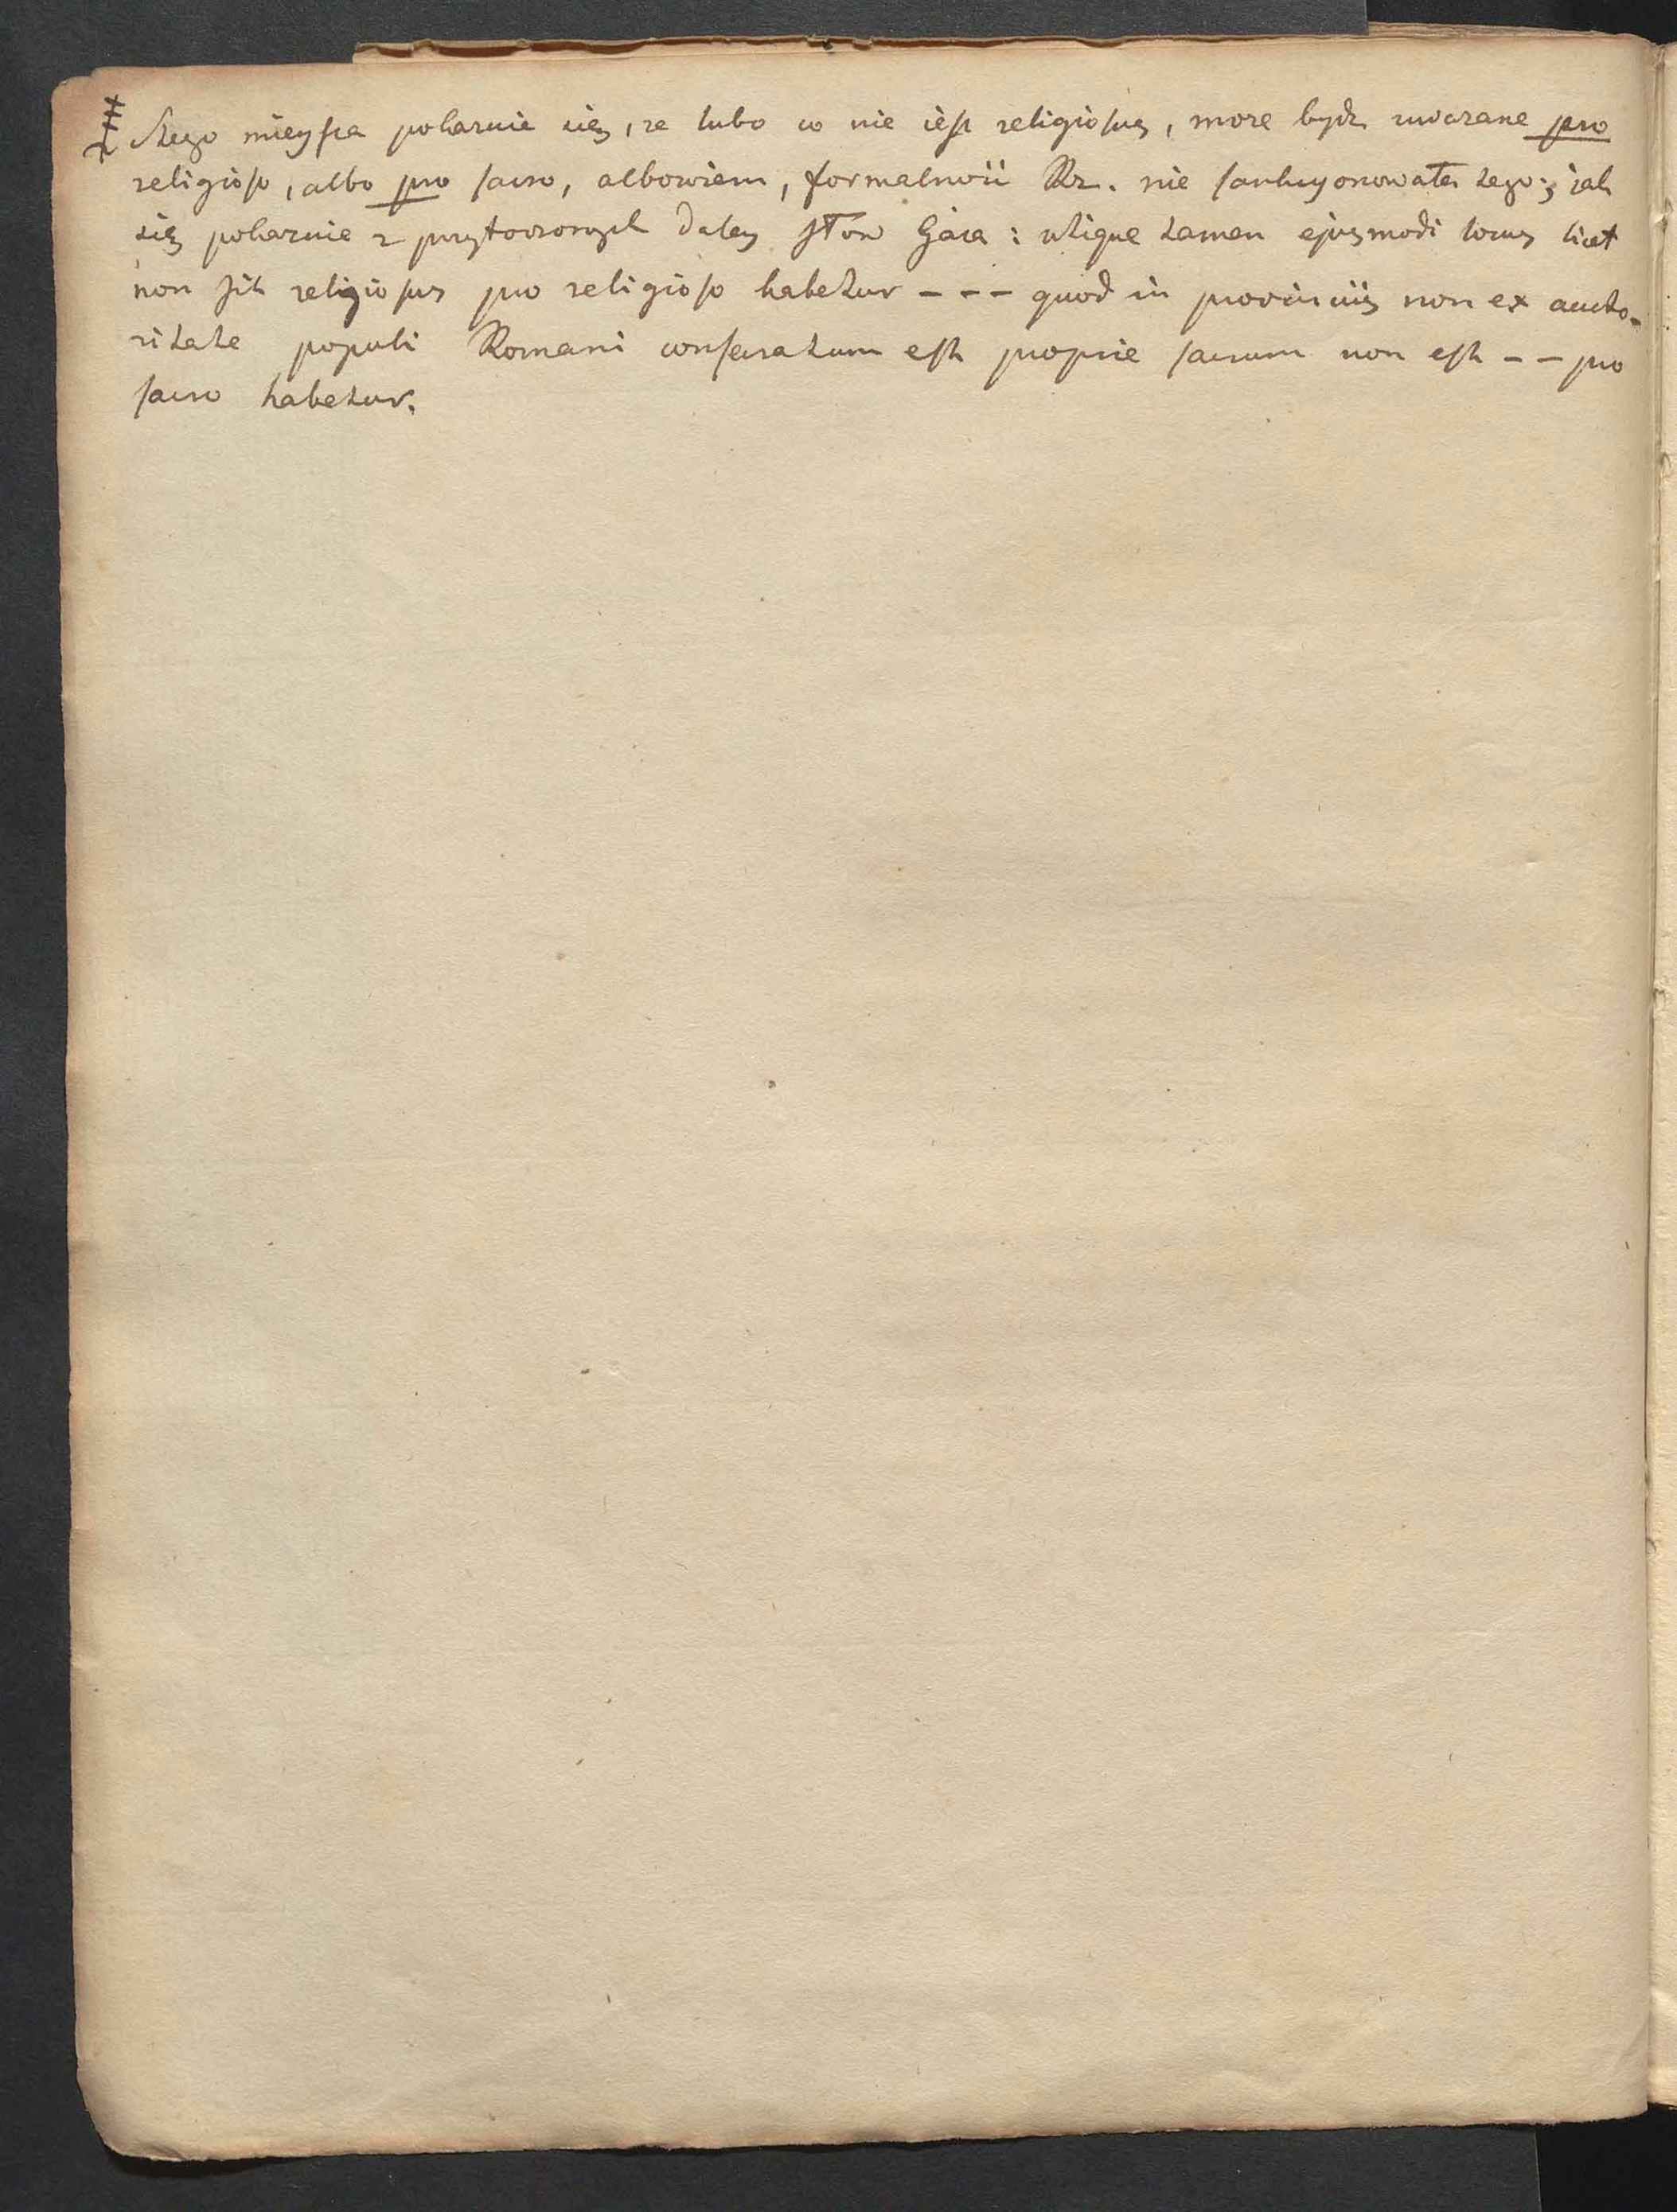 ‡ Z tego mieysca pokazuie się, że lubo co nie iest religiosus, może bydź uważane pro
religioso, albo pro sacro, albowiem, formalności Rz. nie sankcyonowały tego; jak
się pokazuie z przytoczonych daley słow Gaia: utique tamen ejusmodi locus licet
non sit religiosus pro religioso habetur --- quod in provinciis non ex aucto-
ritate populi Romani consecratum est proprie sacrum non est -- pro
sacro habetur.